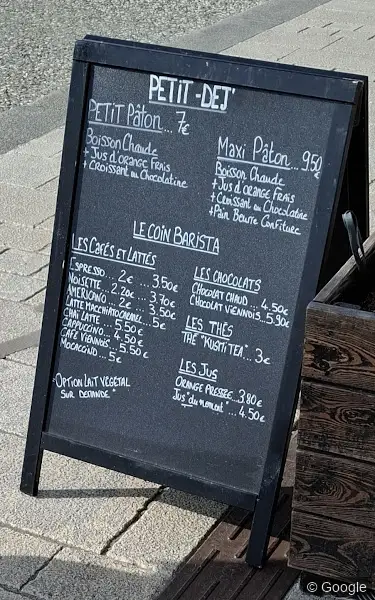 PETIT-DEJ'
PETIT Pâton... 7€
Boisson Chaude
+ Jus d'orange Frais
+ Croissant ou Chocolatine
Maxi Pâton... 9.50€
Boisson Chaude
+ Jus d'orange Frais
+ Croissant ou Chocolatine
+ Pain Beurre Confiture
LE COIN BARISTA
LES CAFÉS ET LATTÉS
Espresso... 2€... 3.50€
Noisette... 2.20€... 3.70€
Americano... 2€... 3.50€
Latte Macchiato Caramel... 5€
Chaï Latte... 5.50€
Cappuccino... 4.50€
Café Viennois... 5.50€
Mocaccino... 5€
"Option Lait Vegetal
sur demande"
LES CHOCOLATS
Chocolat chaud... 4.50€
Chocolat viennois... 5.90€
LES THÉS
Thé "Kusmi Tea"... 3€
LES JUS
Orange pressée... 3.80€
Jus "du moment"... 4.50€
© Google